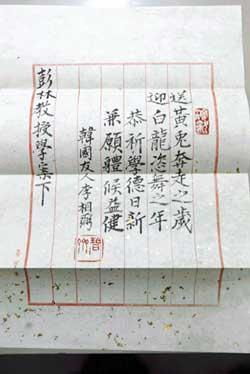 送黃兎奔走之歲
迎白龍恣舞之年
恭祈學德日新
兼願體候益健
韓國友人李相弼
彭林教授學案下